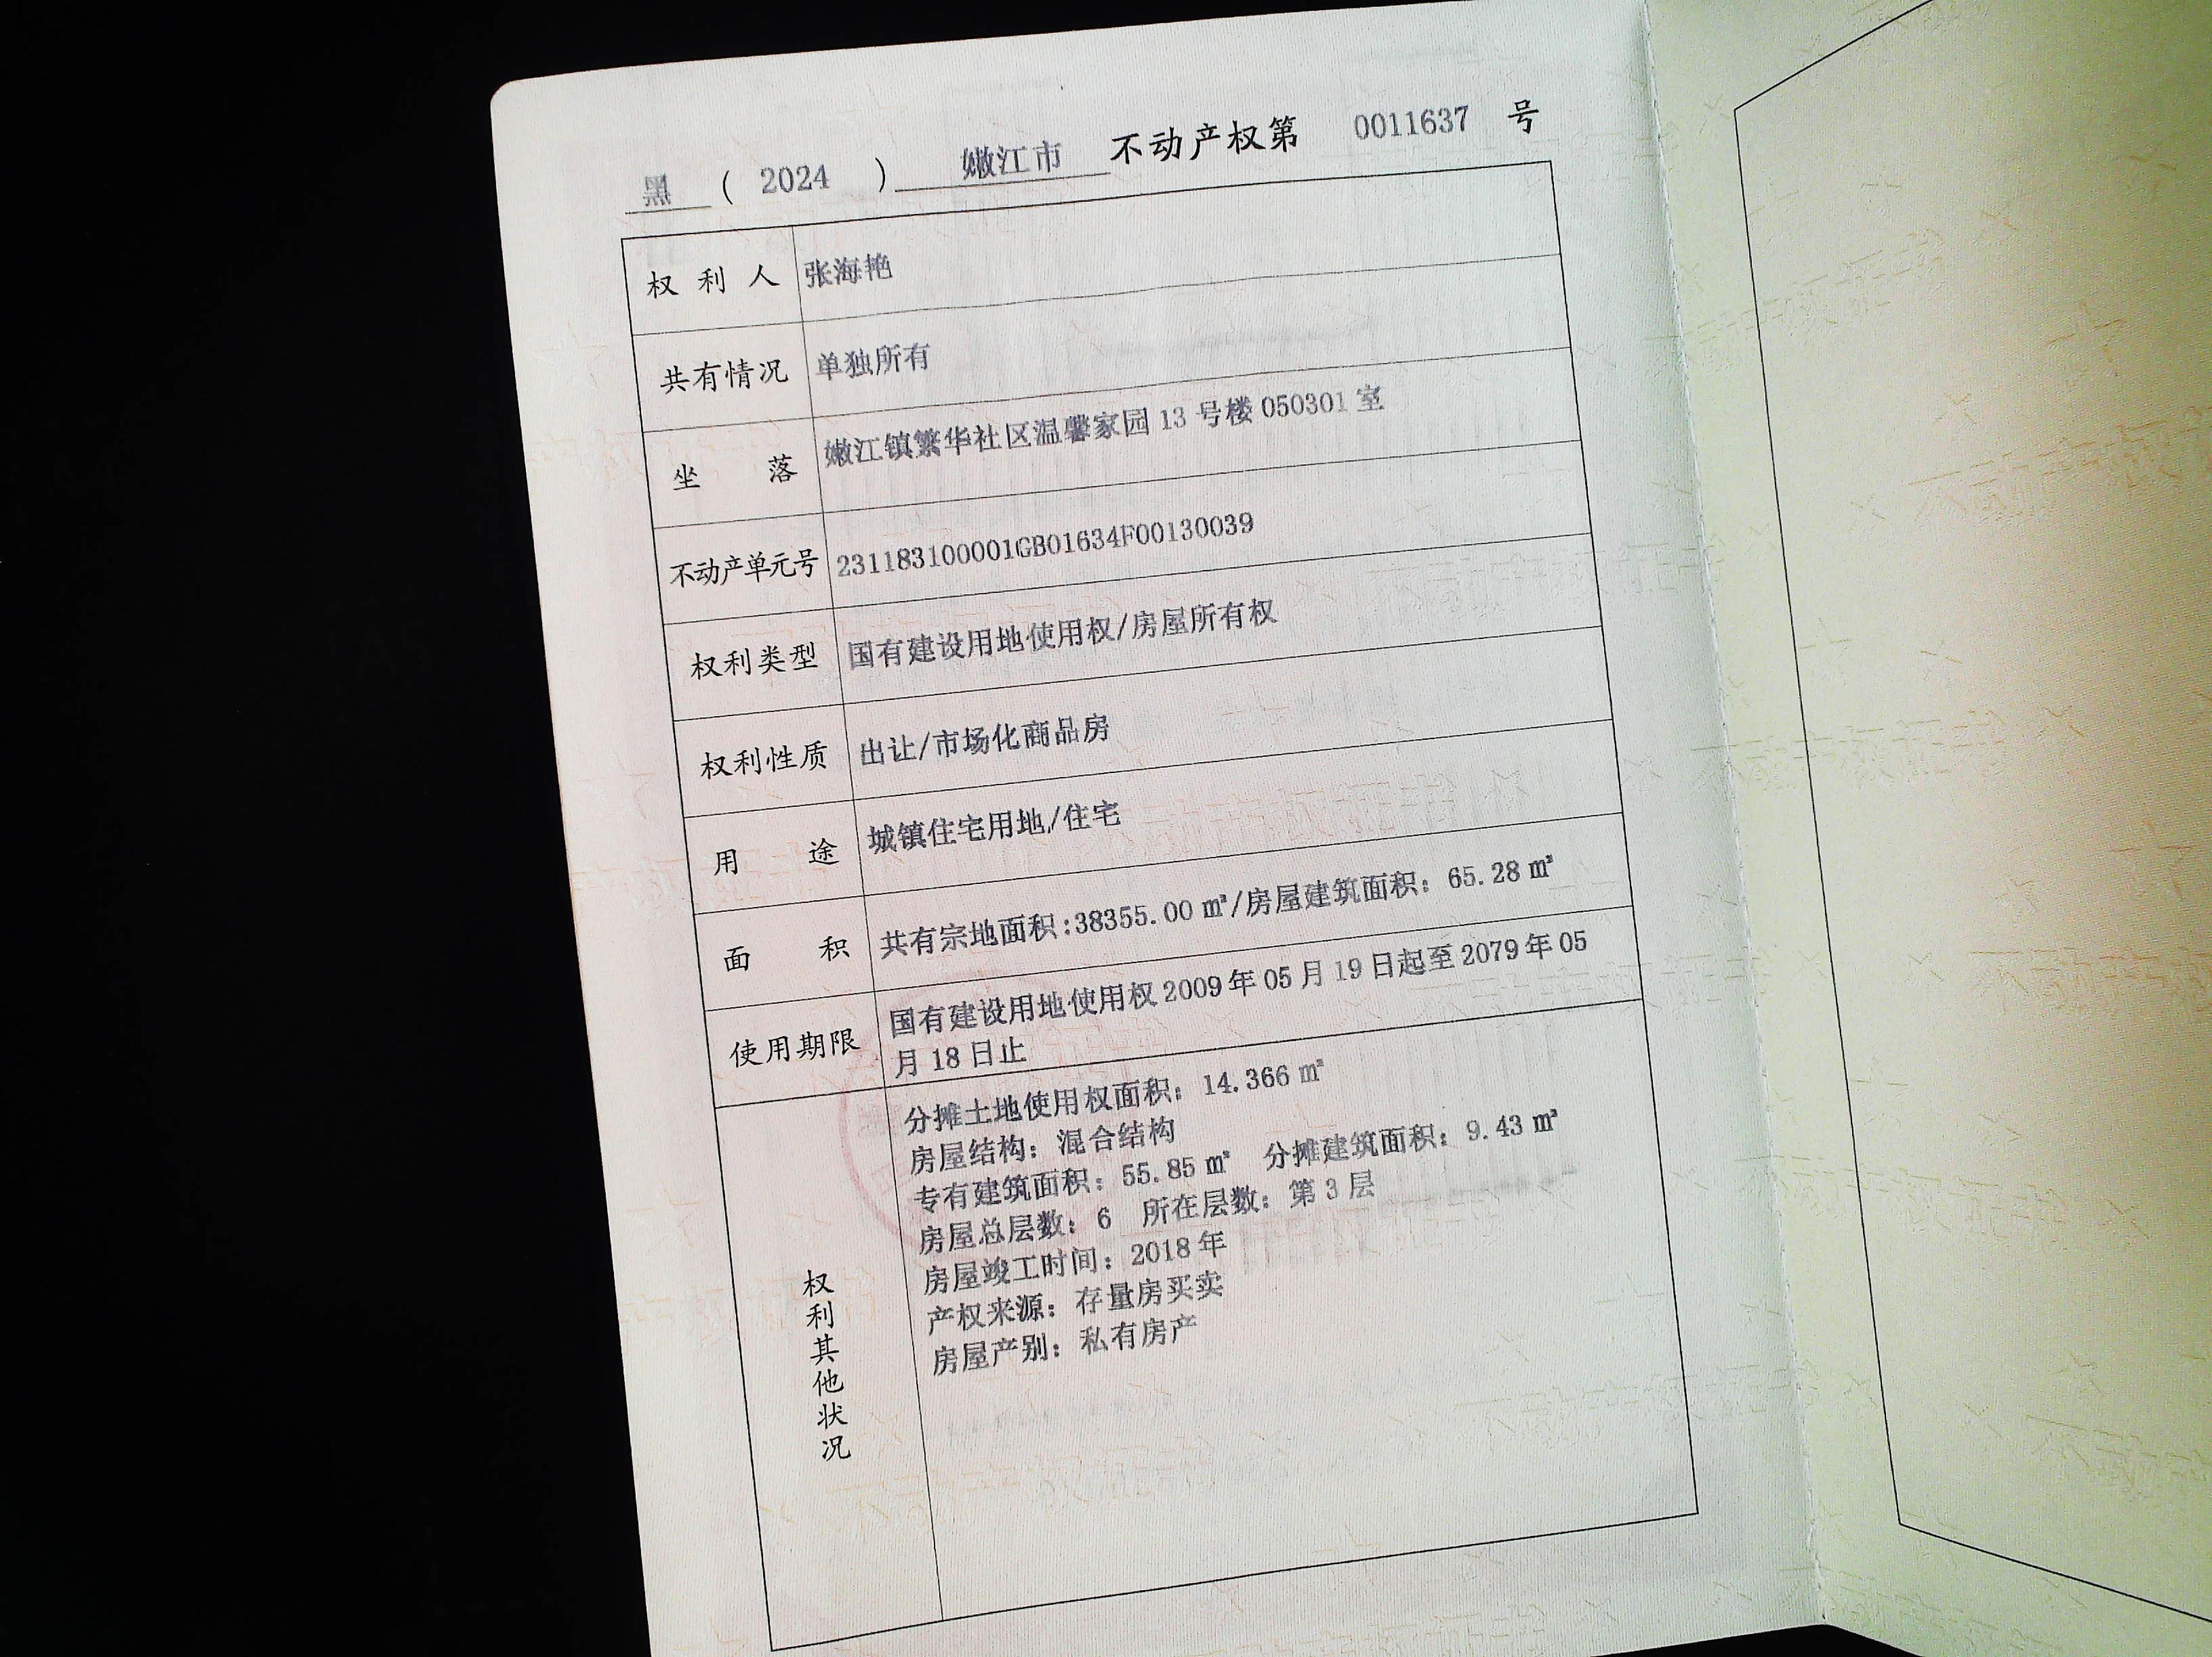 黑 ( 2024 ) 嫩江市 不动产权第 0011637 号
权利人 张海艳
共有情况 单独所有
坐落 嫩江镇繁华社区温馨家园 13 号楼 050301 室
不动产单元号 231183100001GB01634F00130039
权利类型 国有建设用地使用权/房屋所有权
权利性质 出让/市场化商品房
用途 城镇住宅用地/住宅
面积 共有宗地面积:38355.00 ㎡/房屋建筑面积: 65.28 ㎡
使用期限 国有建设用地使用权 2009 年 05 月 19 日起至 2079 年 05
月 18 日止
权利其他状况
分摊土地使用权面积: 14.366 ㎡
房屋结构: 混合结构
专有建筑面积: 55.85 ㎡ 分摊建筑面积: 9.43 ㎡
房屋总层数: 6 所在层数: 第 3 层
房屋竣工时间: 2018 年
产权来源: 存量房买卖
房屋产别: 私有房产